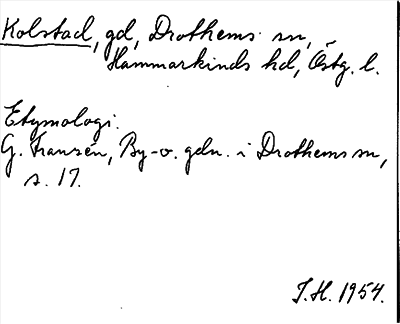 Kolstad, gd, Drothems sn,
Hammarkinds hd, Östg. l.
Etymologi.
G. Franzén, By-o. gdn. i Drothems sn,
s. 17.
I.H. 1954.